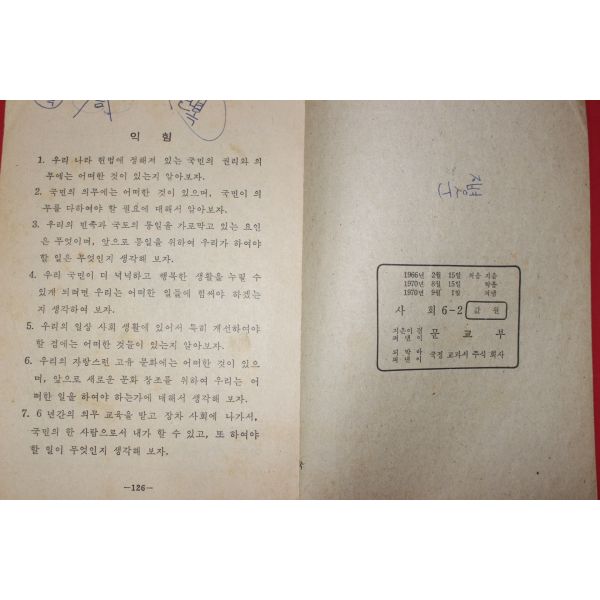 익 힘
1. 우리 나라 헌법에 정해져 있는 국민의 권리와 의
무에는 어떠한 것이 있는지 알아보자.
2. 국민의 의무에는 어떠한 것이 있으며, 국민이 의
무를 다하여야 할 필요에 대해서 알아보자.
3. 우리의 민족과 국토의 통일을 가로막고 있는 요인
은 무엇이며, 앞으로 통일을 위하여 우리가 하여야
할 일은 무엇인지 생각해 보자.
4. 우리 국민이 더 넉넉하고 행복한 생활을 누릴 수
있게 되려면 우리는 어떠한 일들에 힘써야 하겠는
지 생각하여 보자.
5. 우리의 일상 사회 생활에 있어서 특히 개선하여야
할 점에는 어떠한 것들이 있는지 알아보자.
6. 우리의 자랑스런 고유 문화에는 어떠한 것이 있으
며, 앞으로 새로운 문화 창조를 위하여 우리는 어
떠한 일을 하여야 하는가에 대해서 생각해 보자.
7. 6 년간의 의무 교육을 받고 장차 사회에 나가서,
국민의 한 사람으로서 내가 할 수 있고, 또 하여야
할 일이 무엇인지 생각해 보자.
—126—
1966년 2월 15일 처음 지음
1970년 8월 15일 박음
1970년 9월 1일 펴냄
사 회 6-2 값 원
지은이 겸 펴낸이 문 교 부
국정 교과서 주식 회사